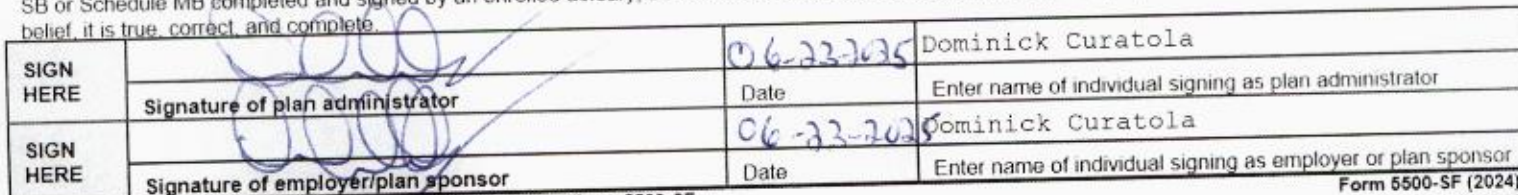 SB or Schedule MB completed and signed by an enrolled actuary,
belief, it is true, correct, and complete.
SIGN HERE
06-23-2025 Dominick Curatola
Signature of plan administrator Date Enter name of individual signing as plan administrator
SIGN HERE
06-23-2025 Dominick Curatola
Signature of employer/plan sponsor Date Enter name of individual signing as employer or plan sponsor
Form 5500-SF (2024)